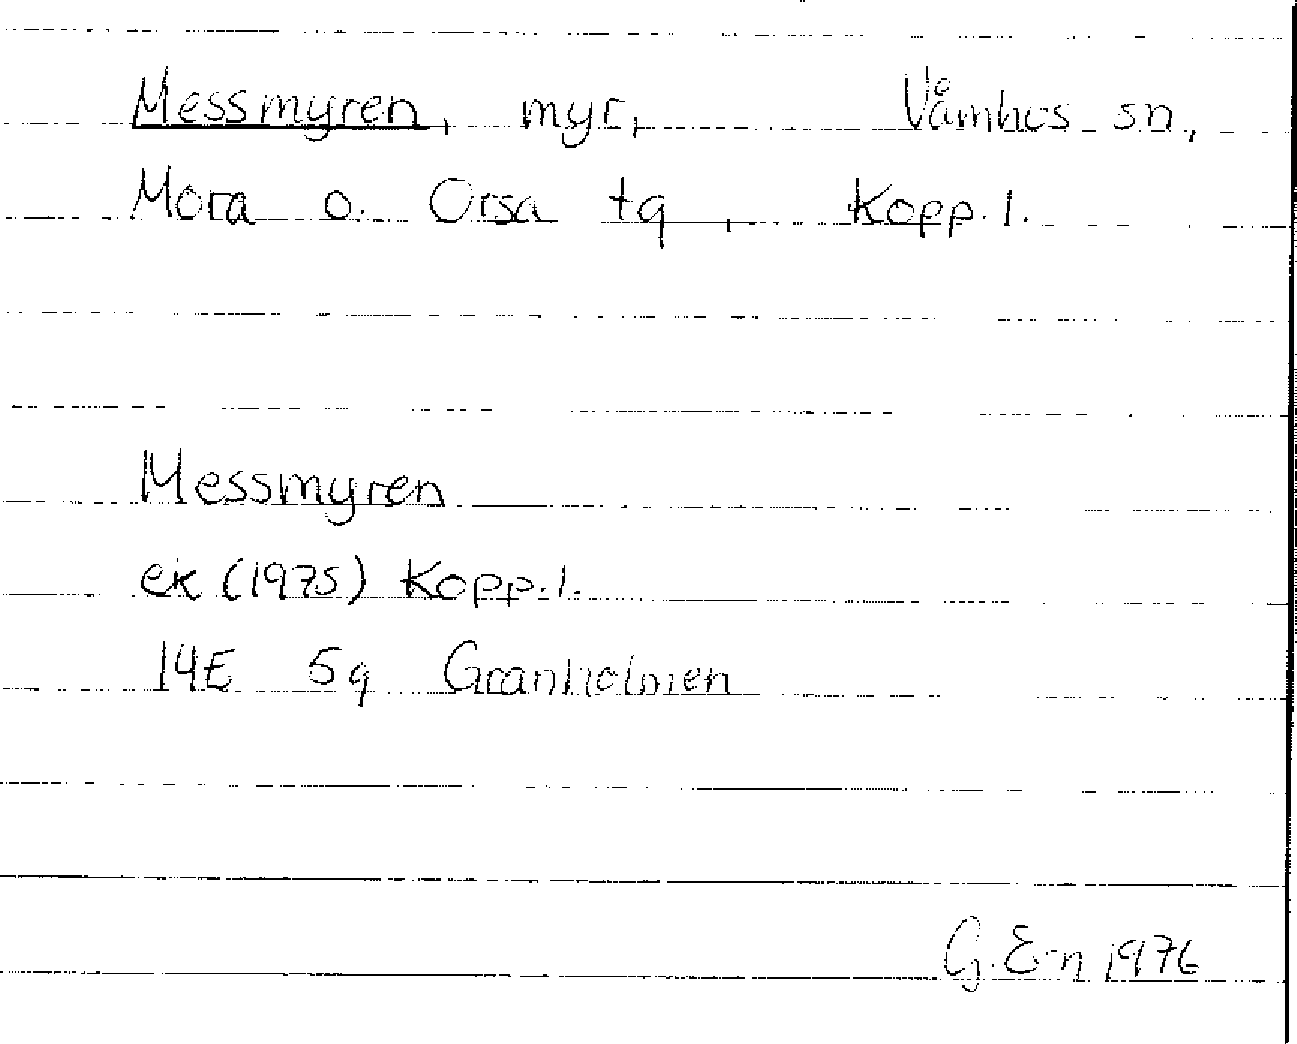 Messmyren, myr, Våmhus sn,
Mora o. Orsa tg, Kopp. l.
Messmyren
ek (1975) Kopp. l.
14E 5g Granholmen
G. E-n 1976